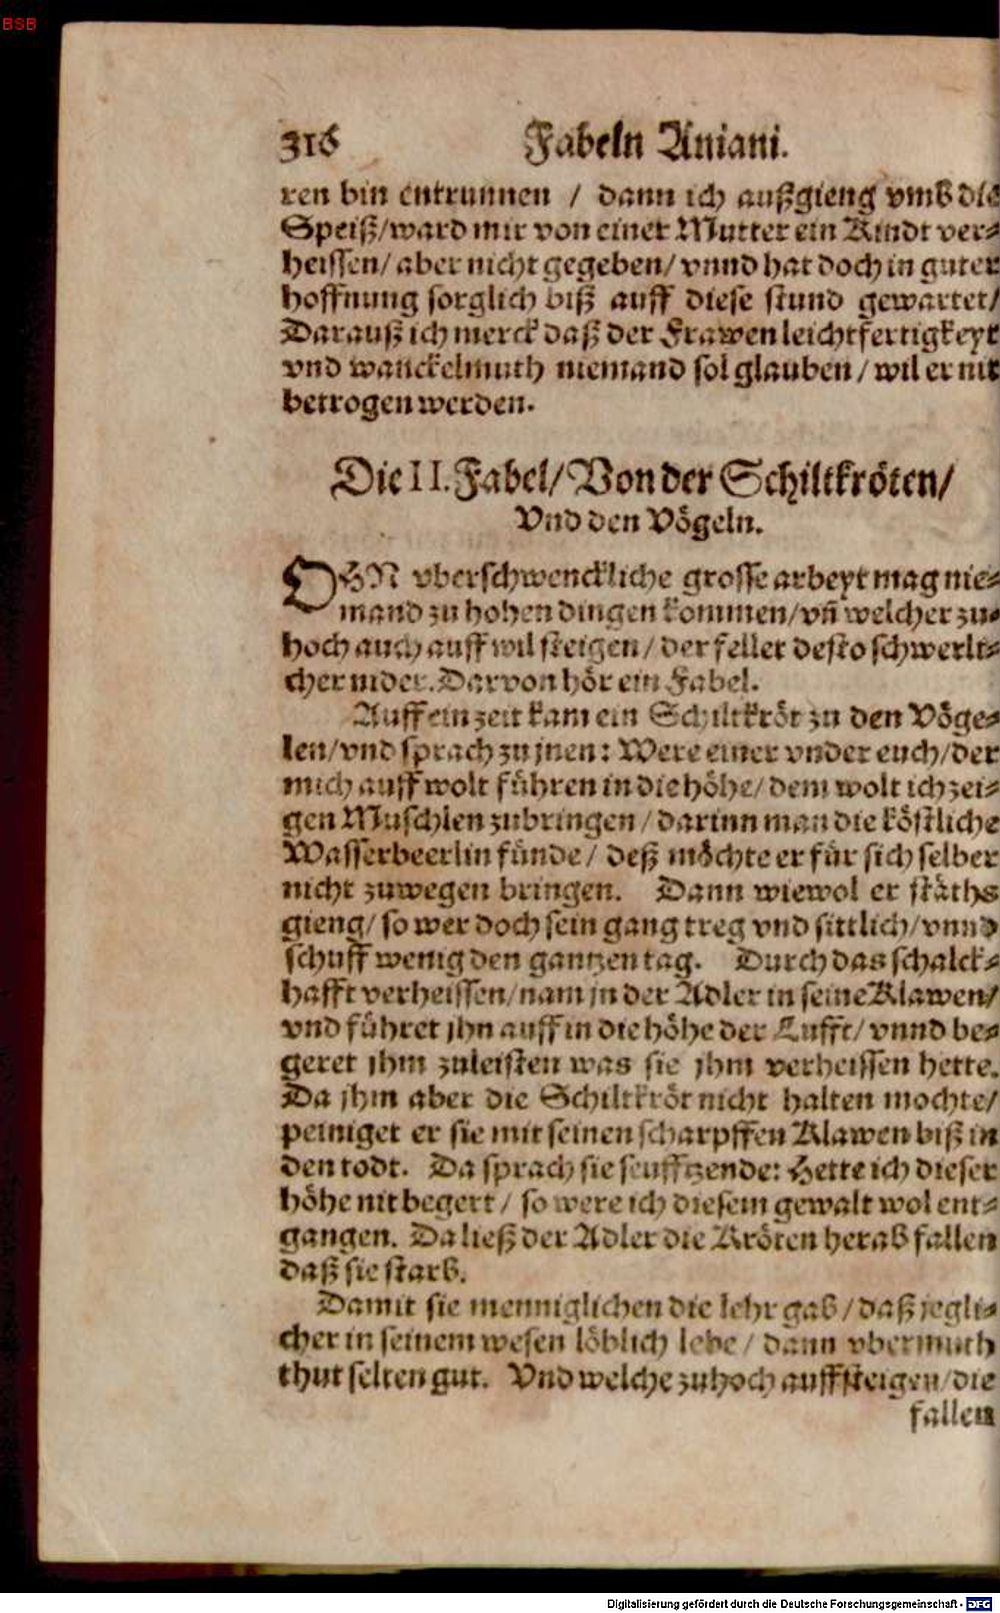 BSB
316 Fabeln Aniani.
ren bin entrunnen / dann ich außgieng vmb die
Speiß/ward mir von einer Mutter ein Kindt ver-
heissen/aber nicht gegeben/vnnd hat doch in guter
hoffnung sorglich biß auff diese stund gewartet/
Darauß ich merck daß der Frawen leichtfertigkeyt
vnd wanckelmuth niemand sol glauben/wil er nit
betrogen werden.
Die II. Fabel/Von der Schiltkröten/
Vnd den Vögeln.
OHN vberschwenckliche grosse arbeyt mag nie-
mand zu hohen dingen kommen/vñ welcher zu-
hoch auch auff wil steigen/der feller desto schwerli-
cher nider. Darvon hör ein Fabel.
Auff ein zeit kam ein Schiltkröt zu den Vöge-
len/vnd sprach zu jnen: Were einer vnder euch/der
mich auff wolt führen in die höhe/dem wolt ich zei-
gen Muschlen zubringen/darinn man die köstliche
Wasserbeerlin fünde/deß möchte er für sich selber
nicht zuwegen bringen. Dann wiewol er stäths
gieng/so wer doch sein gang treg vnd sittlich/vnnd
schuff wenig den gantzen tag. Durch das schalck-
hafft verheissen/nam jn der Adler in seine Klawen/
vnd führet jhn auff in die höhe der Lufft/vnnd be-
geret jhm zuleisten was sie jhm verheissen hette.
Da jhm aber die Schiltkröt nicht halten mochte/
peiniget er sie mit seinen scharpffen Klawen biß in
den todt. Da sprach sie seufftzende: Hette ich dieser
höhe nit begert/so were ich diesem gewalt wol ent-
gangen. Da ließ der Adler die Kröten herab fallen
daß sie starb.
Damit sie menniglichen die lehr gab/daß jegli-
cher in seinem wesen löblich lebe/dann vbermuth
thut selten gut. Vnd welche zuhoch auffsteigen/die
fallen
Digitalisierung gefördert durch die Deutsche Forschungsgemeinschaft - DFG